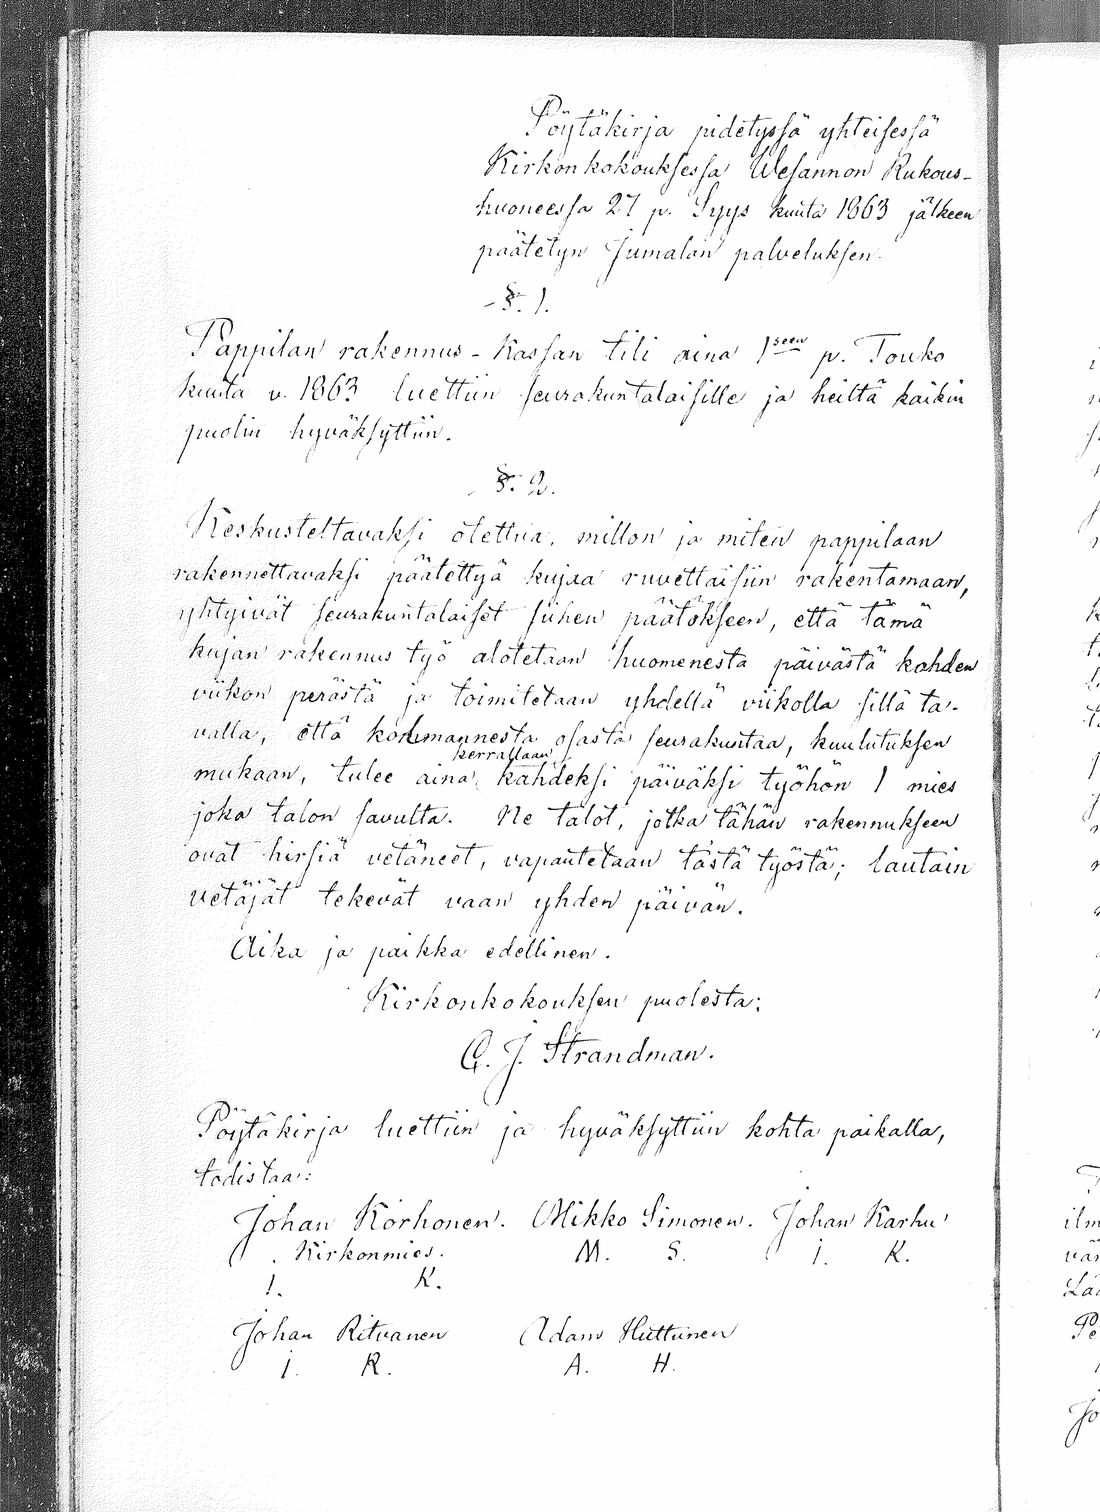 Pöytäkirja pidetyssä yhteisessä
Kirkonkokouksessa Wesannon Rukous-
huoneessa 27 p. Syys kuuta 1863 jälkeen
päätetyn Jumalan palveluksen.
§. 1.
Pappilan rakennus-Kassan tili aina 1seen p. Touko
kuuta v. 1863 luettiin seurakuntalaisille ja heiltä kaikin
puolin hyväksyttiin.
§. 2.
Keskusteltavaksi otettua, millon ja miten pappilaan
rakennettavaksi päätettyä kujaa ruvettaisiin rakentamaan,
yhtyivät seurakuntalaiset siihen päätökseen, että tämä
kujan rakennus työ alotetaan huomenesta päivästä kahden
viikon perästä ja toimitetaan yhdellä viikolla sillä ta-
valla, että kolmannesta osasta seurakuntaa, kuulutuksen
kerrallaan
mukaan, tulee aina kahdeksi päiväksi työhön 1 mies
joka talon savulta. Ne talot, jotka tähän rakennukseen
ovat hirsiä vetäneet, vapautetaan tästä työstä; lautain
vetäjät tekevät vaan yhden päivän.
Aika ja paikka edellinen.
Kirkonkokouksen puolesta:
C. J. Strandman.
Pöytäkirja luettiin ja hyväksyttiin kohta paikalla,
todistaa:
Johan Korhonen. Mikko Simonen. Johan Karhu
Kirkonmies. M. S. I. K.
I. K.
Johan Ritvanen Adam Huttunen
I. R. A. H.